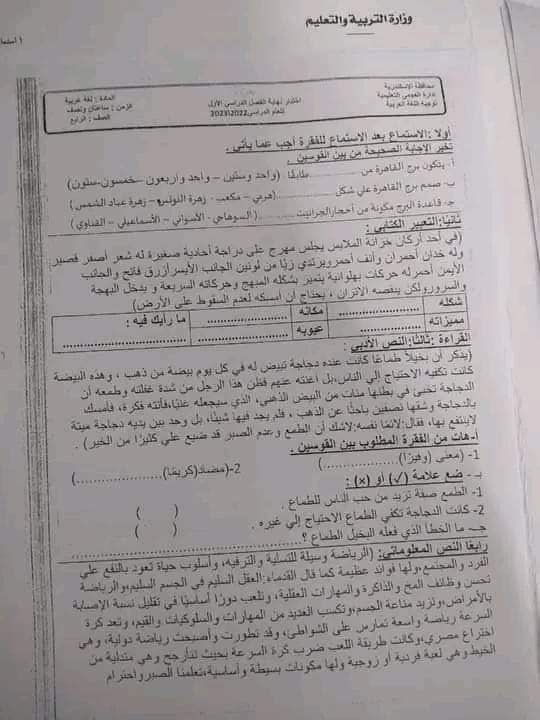 وزارة التربية والتعليم
محافظة الإسكندرية
إدارة العجمي التعليمية
توجيه اللغة العربية
اختبار نهاية الفصل الدراسي الأول
للعام الدراسي 2022\2023
المادة : لغة عربية
الزمن : ساعتان ونصف
الصف : الرابع
أولا :الاستماع بعد الاستماع للفقرة أجب عما يأتي .
تخير الإجابة الصحيحة من بين القوسين .
أ- يتكون برج القاهرة من .......... طابقًا (واحد وستين – واحد واربعون – خمسون-ستون)
ب- صمم برج القاهرة على شكل ..........(هرمي – مكعب – زهرة اللوتس – زهرة عباد الشمس )
ج- قاعدة البرج مكونة من أحجار الجرانيت.......... (السوهاجي – الأسواني – الأسماعيلي – القناوي )
ثانيًا:التعبير الكتابي :
(في أحد أركان خزانة الملابس يجلس مهرج على دراجة أحادية صغيرة له شعر أصفر قصير
وله خدان أحمران وأنف أحمر،ويرتدي زيًا من لونين الجانب الأيسر أزرق فاتح والجانب
الأيمن أحمر،له حركات بهلوانية يتميز بشكله المبهج وحركاته السريعة و يدخل البهجة
والسرور ولكن ينقصه الاتزان ، يحتاج إن أمسكه لعدم السقوط على الأرض)
شكله .................. مكانه .................. ما رأيك فيه :
مميزاته .................. عيوبه .................. ..................
القراءة :ثالثا:النص الأدبي :
(يذكر أن بخيلًا طماعًا كانت عنده دجاجة تبيض له في كل يوم بيضة من ذهب ، وهذه البيضة
كانت تكفيه الاحتياج إلي الناس،بل أغنته عنهم فظن هذا الرجل من شدة غفلته وطمعه أن
الدجاجة تخبئ في بطنها مئات من البيض الذهبي، الذي سيجعله غنيًا،فأتته فكرة، فأمسك
بالدجاجة وشقها نصفين باحثًا عن الذهب ، فلم يجد فيها شيئًا، بل وجد بين يديه دجاجة ميتة
لاينتفع بها، فقال:لائمًا نفسه:لاشك أن الطمع وعدم الصبر قد ضيع علي كثيرًا من الخير) .
أ-هات من الفقرة المطلوب بين القوسين .
1- (معنى (وفيرًا)....................) 2-(مضاد(كريمًا)....................)
ب – ضع علامة (√) أو (×) :
1- الطمع صفة تزيد من حب الناس للطماع . ( )
2- كانت الدجاجة تكفي الطماع الاحتياج إلي غيره . ( )
جـ- ما الخطأ الذي فعله البخيل الطماع ؟............................
رابعًا النص المعلوماتي: (الرياضة وسيلة للتسلية والترفيه، وأسلوب حياة تعود بالنفع علي
الفرد والمجتمع،ولها فوائد عظيمة كما قال القدماء:العقل السليم في الجسم السليم،والرياضة
تحسن وظائف المخ والذاكرة والمهارات العقلية، وتلعب دورًا أساسيًا في تقليل نسبة الإصابة
بالأمراض،وتزيد مناعة الجسم،وتكسب العديد من المهارات والسلوكيات والقيم، وتعد كرة
السرعة رياضة واسعة تمارس على الشواطئ، وقد تطورت وأصبحت رياضة دولية، وهي
اختراع مصري،وكانت طريقة اللعب ضرب كرة السرعة بحيث تتأرجح وهي متدلية من
الخيط وهي لعبة فردية أو زوجية ولها مكونات بسيطة وأساسية،تعلمنا الصبر واحترام